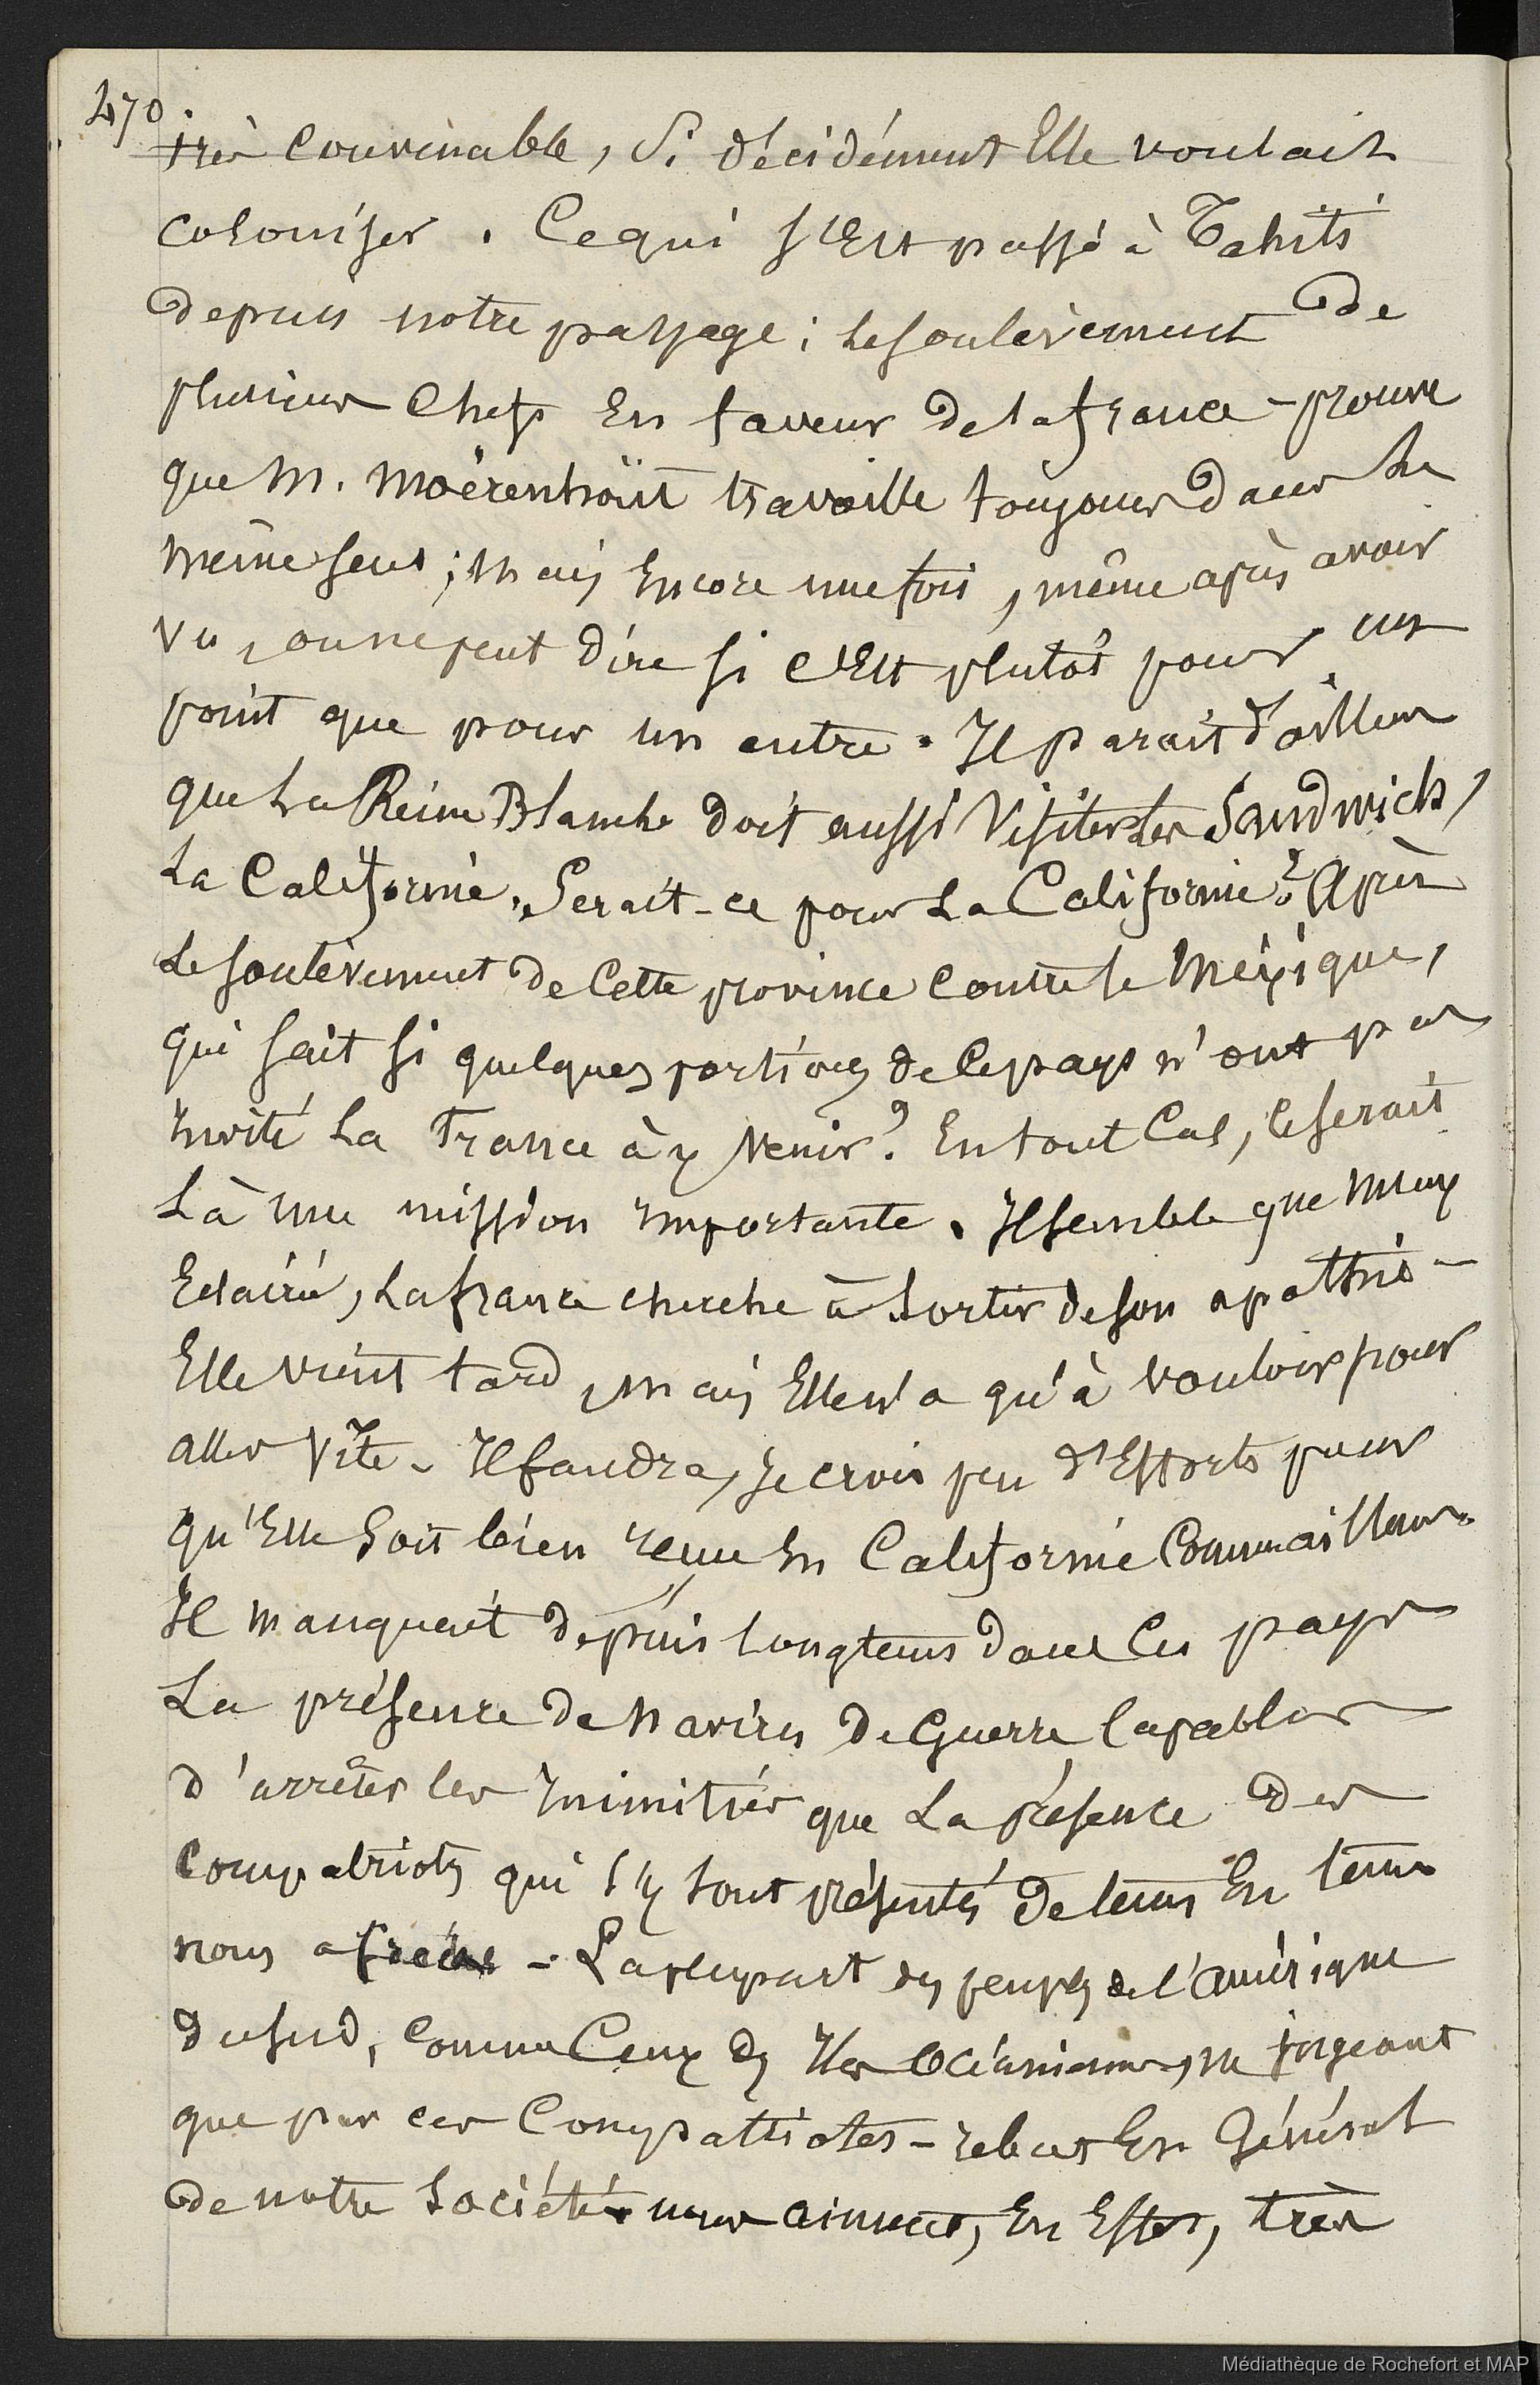 470
très convenable, Si décidément Elle voulait
coloniser. Ce qui s'Est passé à Tahiti
depuis notre passage ; le soulèvement de
plusieurs Chefs En faveur de la france - prouve
que M. Moërenhoüt travaille toujours dans le
même sens ; mais Encore une fois, même après avoir
vu, on ne peut dire si c'Est plutôt pour un
point que pour un autre. Il parait d'ailleurs
que La Reine Blanche doit aussi Visiter Les Sandwich,
La Californie. Serait-ce pour La Californie ? Après
Le soulèvement de Cette province Contre le Méxique,
qui sait si quelques portions de Ce pays n'ont pas
Invité La France à y Venir ? En tout Cas, Ce serait
Là une mission Importante. Il semble que mieux
Eclairée, La france cherche à Sortir de son apathie -
Elle vient tard, mais Elle n'a qu'à vouloir pour
aller Vite. Il faudra, Je crois peu d'Efforts pour
qu'Elle Soit bien reçue En Californie Comme ailleurs.
Il manquait depuis Longtems dans Ces pays
La présence de Navires de Guerre Capables
d'arrêter les Inimitiés que La présence des
Compatriotes qui s'y Sont présentés de tems En tems
nous a créées - La plupart des peuples de l'amérique
du sud, Comme Ceux des Iles Océaniennes, ne jugeant
que par ces Compatriotes - rebut En Général
de notre Société nous aiment, En Effet, très
Médiathèque de Rochefort et MAP